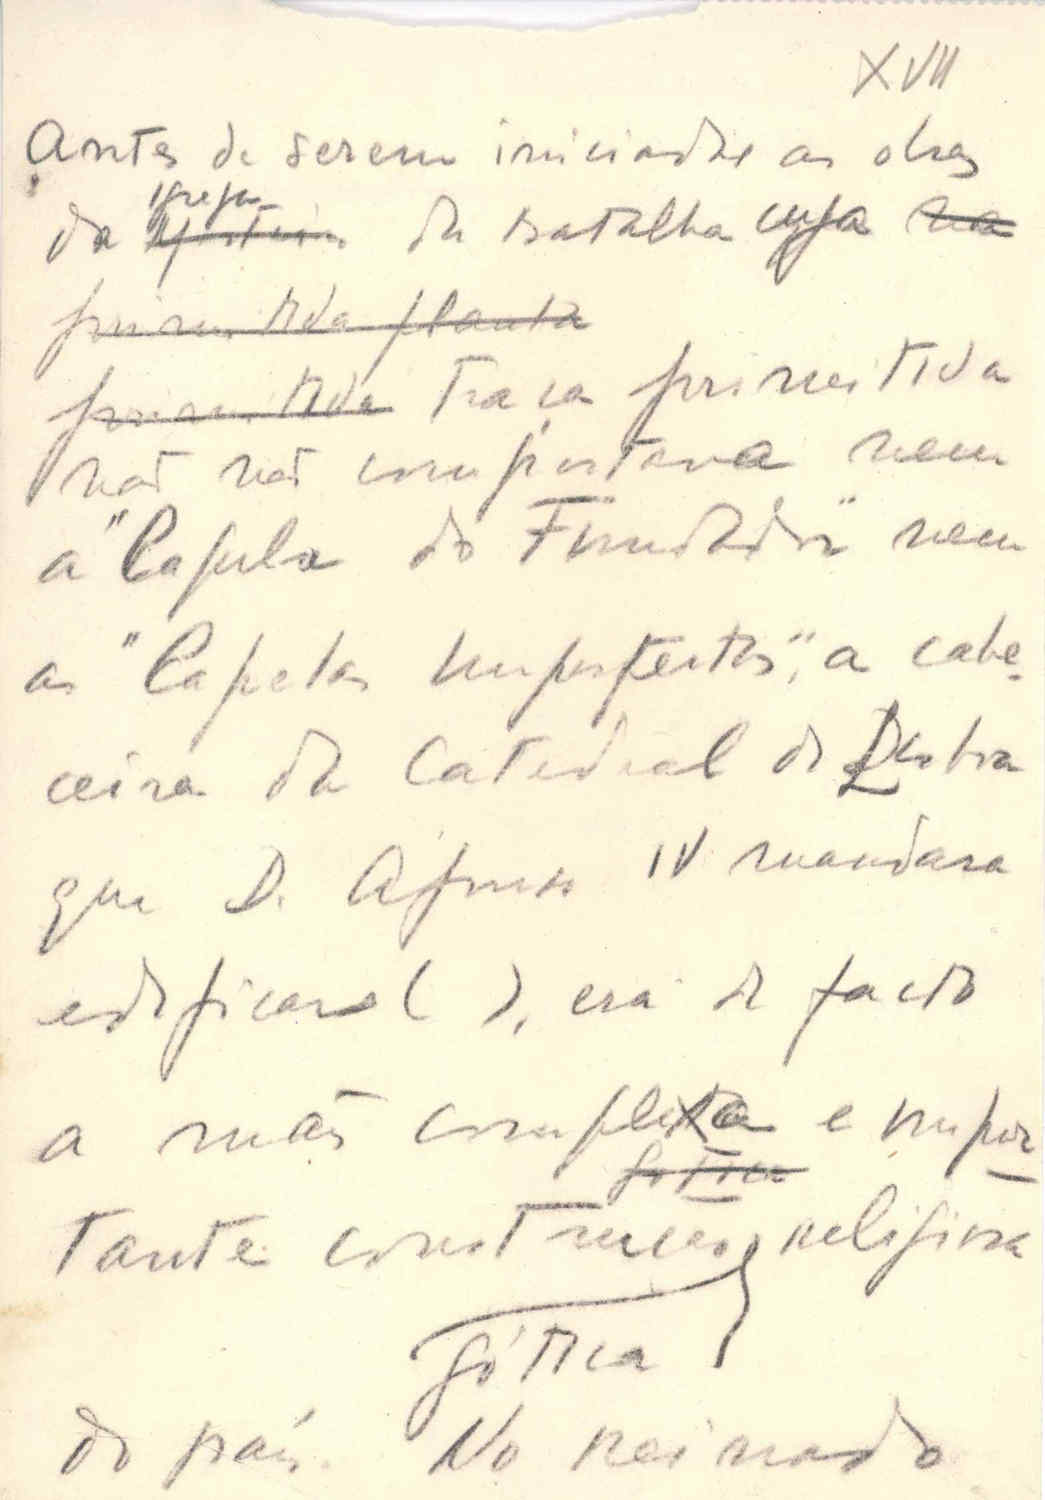 XVII
Antes de serem iniciadas as obras
igreja
da da Batalha cuja na
primitida planta
primitida traça primitida
não não comportava nem
a "Capela do Fundador" nem
as "Capelas Imperfeitas", a cabe-
ceira da Catedral de Lisboa
que D. Afonso IV mandara
edificara ( ), era de facto
a mais completa e impor
gotica
tante construção religiosa
gótica
do país. No reinado